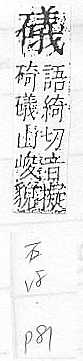 礒
語綺切音擬
碕礒山峻貌
石
v8
p81